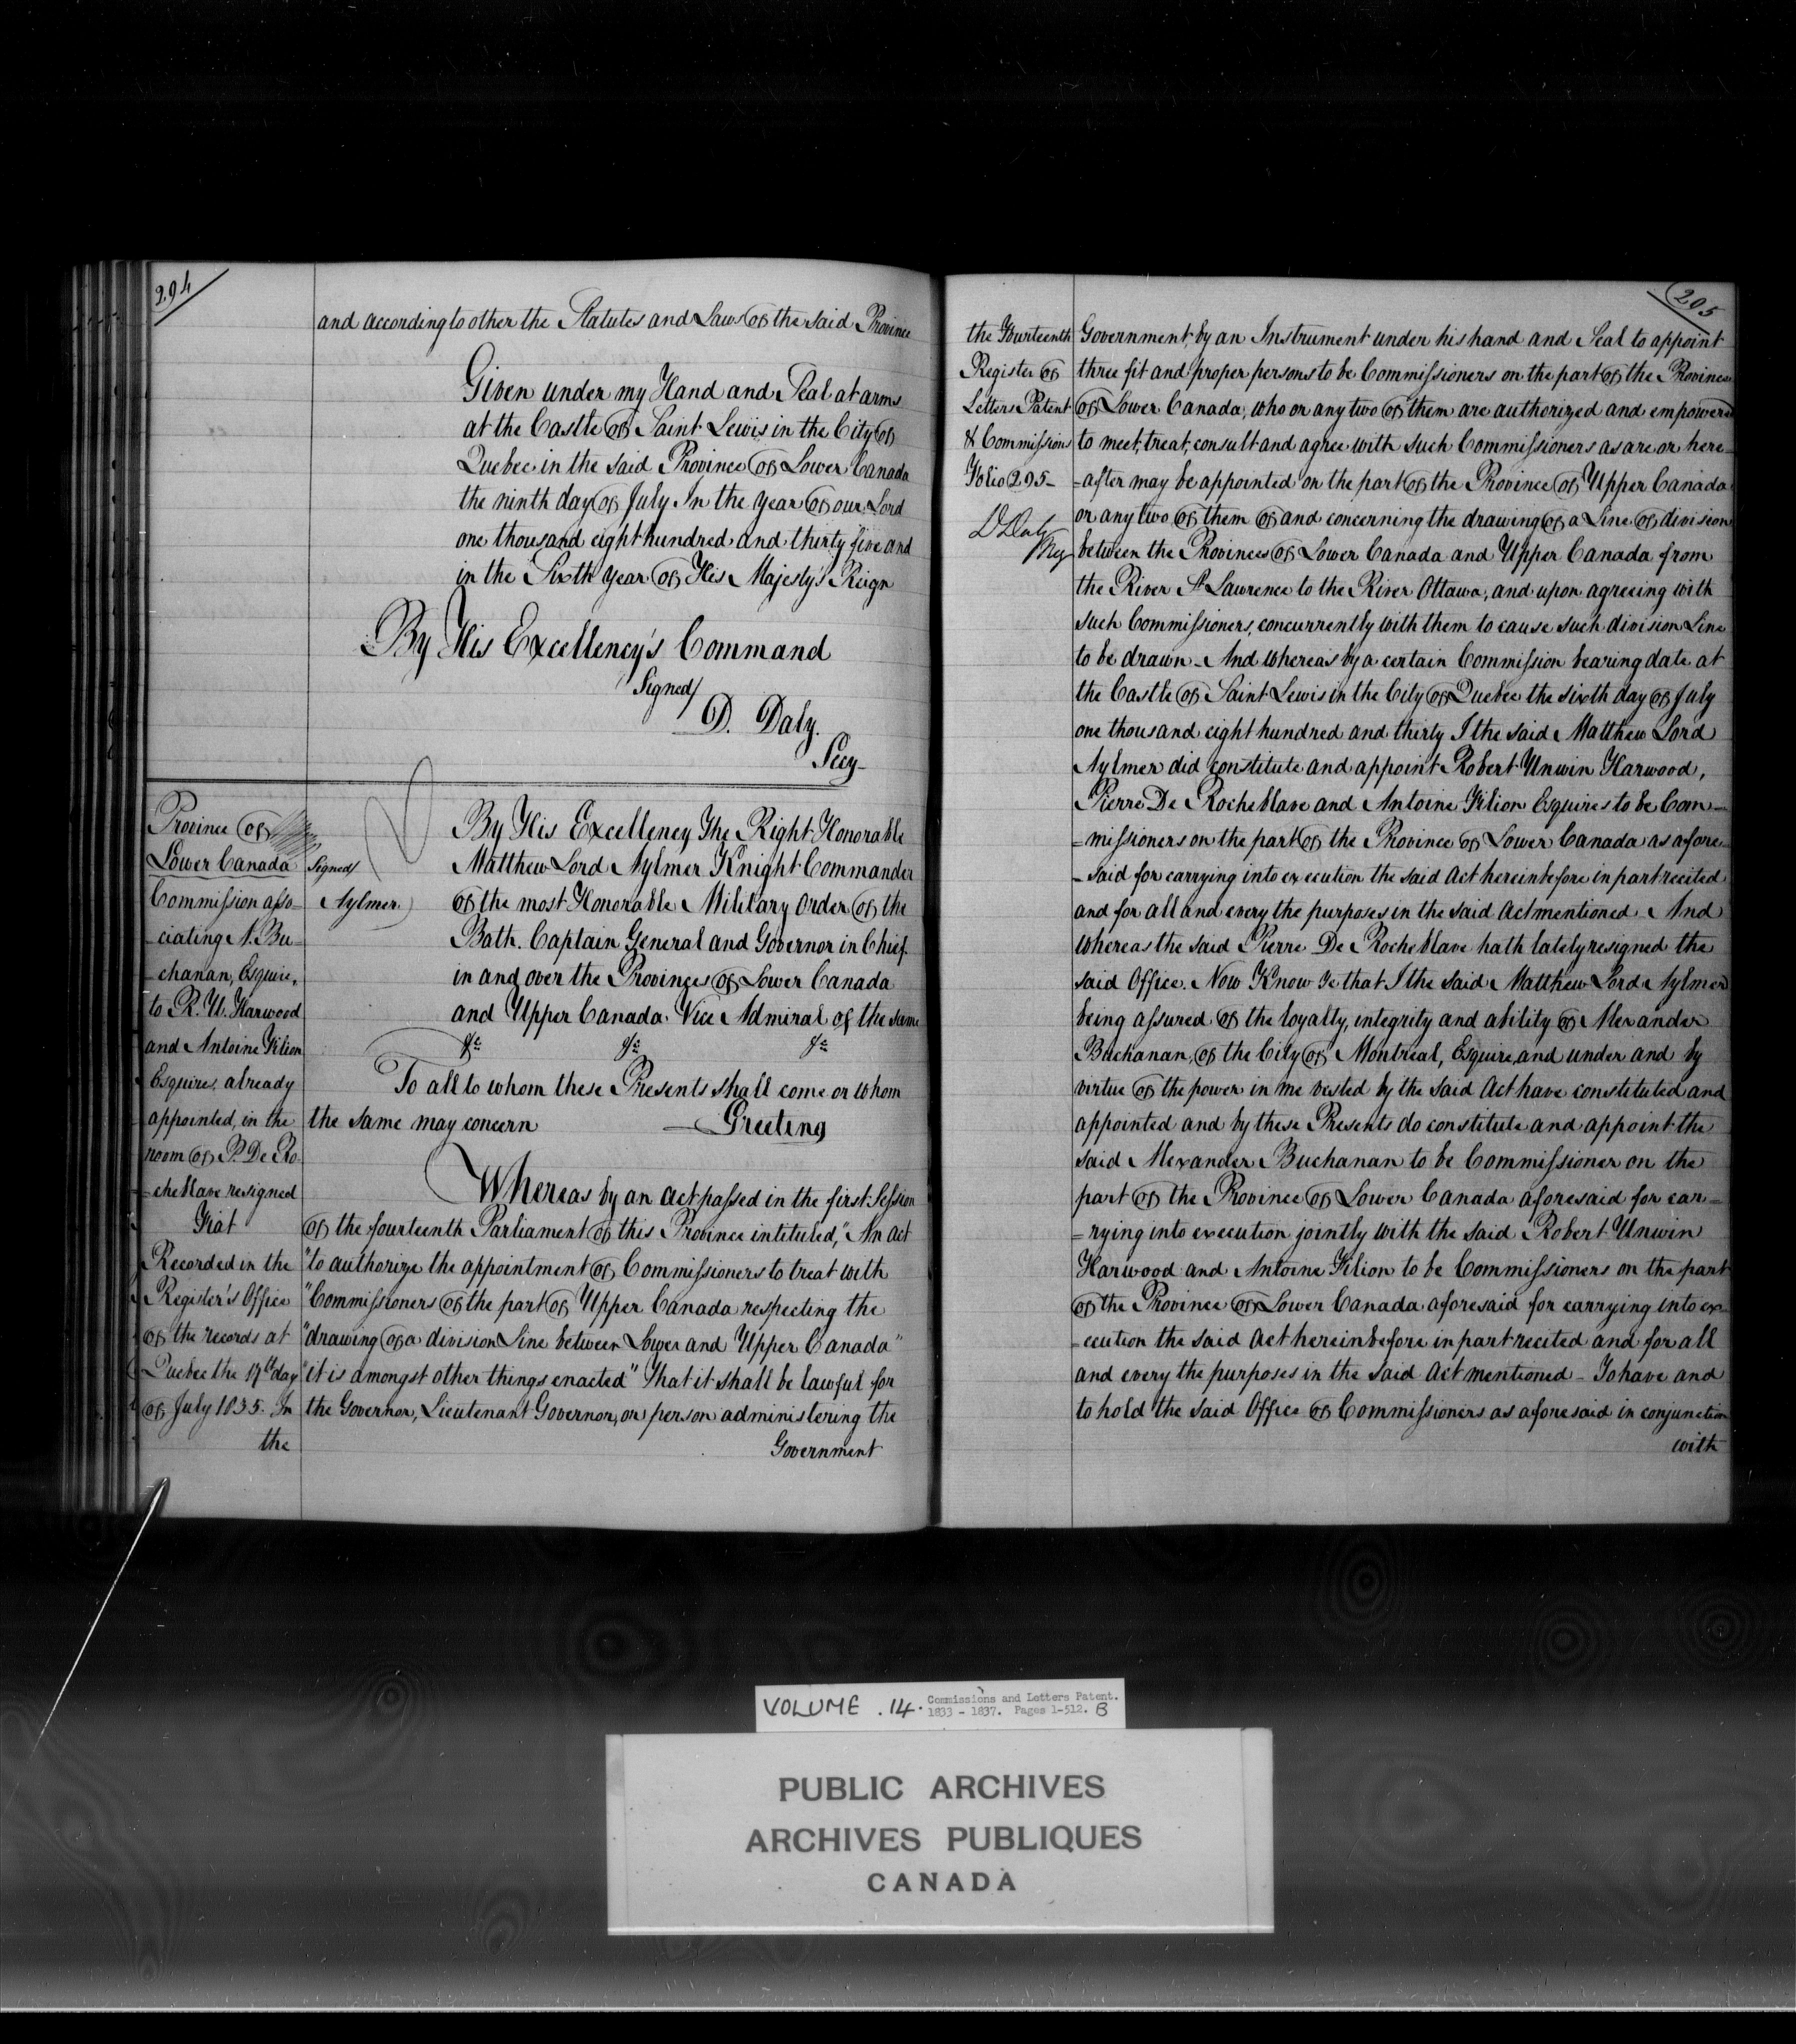 294
and according to other the Statutes and Laws of the said Province
Given under my Hand and Seal at arms
at the Castle of Saint Lewis in the City of
Quebec in the said Province of Lower Canada
the ninth day of July In the year of our Lord
one thousand eight hundred and thirty five and
in the Sixth year of His Majesty's Reign
By His Excellency's Command
Signed/
D. Daly.
Secy
Province of
Lower Canada
Commission asso-
-ciating A. Bu-
-chanan, Esquire,
to R. U. Harwood
and Antoine Filion
Esquires, already
appointed, in the
room of P. De Ro-
-cheblave resigned
Fiat
Recorded in the
Register's Office
of the records at
Quebec the 17th day
of July 1835. In
the
Signed/
Aylmer
By His Excellency The Right Honorable
Matthew Lord Aylmer Knight Commander
of the most Honorable Military Order of the
Bath. Captain General and Governor in Chief
in and over the Provinces of Lower Canada
and Upper Canada. Vice Admiral of the same
&c &c &c
To all to whom these Presents shall come or whom
the same may concern Greeting
Whereas by an act passed in the first Session
of the fourteenth Parliament of this Province intituled, "An Act
"to authorize the appointment of Commissioners to treat with
"Commissioners of the part of Upper Canada respecting the
"drawing of a division Line between Lower and Upper Canada"
"it is amongst other things enacted" That it shall be lawful for
the Governor, Lieutenant Governor, or person administering the
Government
295
the Fourteenth
Register of
Letters Patent
& Commissions
Folio 295-
D Daly
Reg
Government, by an Instrument under his hand and Seal to appoint
three fit and proper persons to be Commissioners on the part of the Province
of Lower Canada, who or any two of them are authorized and empowered
to meet, treat, consult and agree with such Commissioners as are or here-
-after may be appointed on the part of the Province of Upper Canada
or any two of them of and concerning the drawing of a Line of division
between the Provinces of Lower Canada and Upper Canada from
the River St Lawrence to the River Ottawa, and upon agreeing with
such Commissioners, concurrently with them to cause such division Line
to be drawn - And whereas by a certain Commission bearing date at
the Castle of Saint Lewis in the City of Quebec the sixth day of July
one thousand eight hundred and thirty I the said Matthew Lord
Aylmer did constitute and appoint Robert Unwin Harwood,
Pierre De Rocheblave and Antoine Filion Esquires to be Com-
=missioners on the part of the Province of Lower Canada as afore-
-said for carrying into execution the said Act hereinbefore in part recited
and for all and every the purposes in the said Act mentioned - And
whereas the said Pierre De Rocheblave hath lately resigned the
said Office. Now Know Ye that I the said Matthew Lord Aylmer
being assured of the loyalty, integrity and ability of Alexander
Buchanan, of the City of Montreal, Esquire, and under and by
virtue of the power in me vested by the said Act have constituted and
appointed and by these Presents do constitute and appoint the
said Alexander Buchanan to be Commissioner on the
part of the Province of Lower Canada aforesaid for car-
=rying into execution jointly with the said Robert Unwin
Harwood and Antoine Filion to be Commissioners on the part
of the Province of Lower Canada aforesaid for carrying into ex-
-ecution the said Act hereinbefore in part recited and for all
and every the purposes in the said Act mentioned - To have and
to hold the said Office of Commissioners as aforesaid in conjunction
with
VOLUME .14. Commissions and Letters Patent.
1833 - 1837. Pages 1-512. B
PUBLIC ARCHIVES
ARCHIVES PUBLIQUES
CANADA